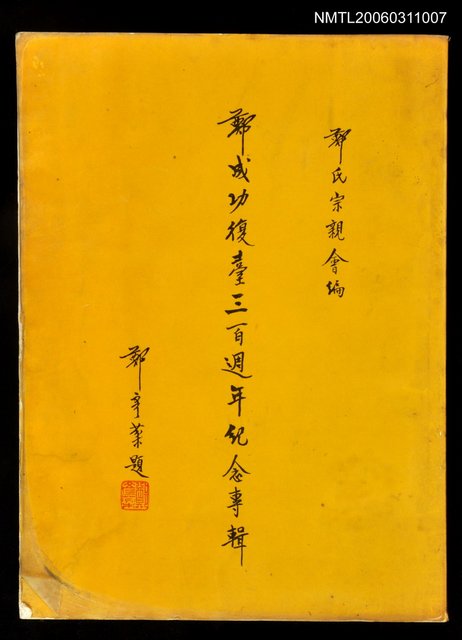 NMTL20060311007
鄭氏宗親會編
鄭成功復臺三百週年紀念專輯
鄭彥棻題